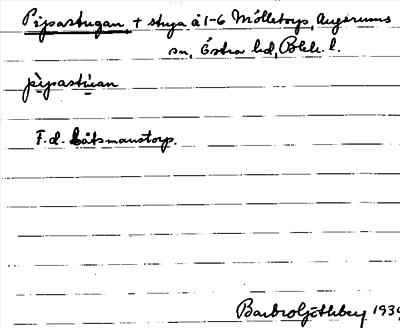 Pipastugan + stuga å 1-6 Mölletorp, Augerums
sn, Östra hd, Blek. l.
pìpastúan
F.d. Båtsmanstorp.
Barbro Göthberg 1939